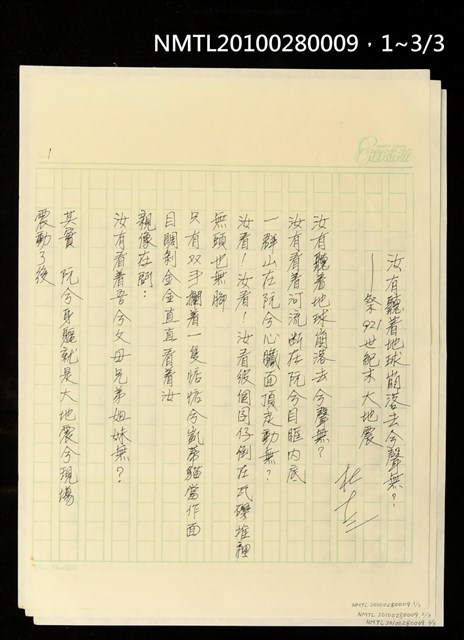 NMTL20100280009，1~3/3
1
汝有聽着地球崩落去兮聲無？
——祭921世紀末大地震
汝有聽着地球崩落去兮聲無？
汝有看着河流断在阮兮目眶内底
一群山在阮兮心臟面頂走動無？
汝看！汝看！汝看彼個囝仔倒在瓦礫堆裡
無頭也無脚
只有双手攔着一隻恬恬兮凱蒂貓當作面
目睭剝金金直直看着汝
親像在問：
汝有看着吾兮父母兄弟姐妹無？
其實 阮兮身軀就是大地震兮現場
震動了後
NMTL20100280009 1/3
NMTL20100280009 2/3
NMTL20100280009 3/3